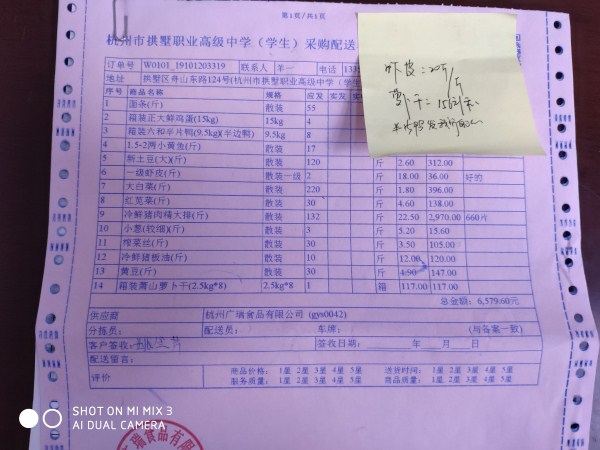 第1页/共1页
杭州市拱墅职业高级中学（学生）采购配送
订单号 W0101_19101203319 联系人 羊一 电话
地址 拱墅区舟山东路124号(杭州市拱墅职业高级中学(学
序号 商品名称 规格 应发 实发 应
虾皮：20元/斤
萝卜干：156元/来
1 面条(斤) 散装 55
2 箱装正大鲜鸡蛋(15kg) 15kg 4
3 箱装六和半片鸭(9.5kg)(半边鸭) 9.5kg 8
4 1.5-2两小黄鱼(斤) 散装 17
5 新土豆(大)(斤) 散装 120 斤 2.60 312.00
6 一级虾皮(斤) 散装一级 2 斤 18.00 36.00 好的
7 大白菜(斤) 散装 220 斤 1.80 396.00
8 红苋菜(斤) 散装 30 斤 4.60 138.00
9 冷鲜猪肉精大排(斤) 散装 132 斤 22.50 2,970.00 660片
10 小葱(较细)(斤) 散装 3 斤 5.20 15.60
11 榨菜丝(斤) 散装 30 斤 3.50 105.00
12 冷鲜猪板油(斤) 散装 10 斤 12.00 120.00
13 黄豆(斤) 散装 30 斤 4.90 147.00
14 箱装萧山萝卜干(2.5kg*8) 2.5kg*8 1 箱 117.00 117.00
总金额：6,579.60元
供应商 杭州广瑞食品有限公司 (gys0042)
分拣员： 配送员： 车牌： (与备案一致)
客户签收： 签收日期： 年 月 日
配送留言：
评价 商品价格： 1星 2星 3星 4星 5星 送货时间： 1星 2星 3星 4星 5星
服务质量： 1星 2星 3星 4星 5星 商品质量： 1星 2星 3星 4星 5星
广瑞食品有限
SHOT ON MI MIX 3
AI DUAL CAMERA